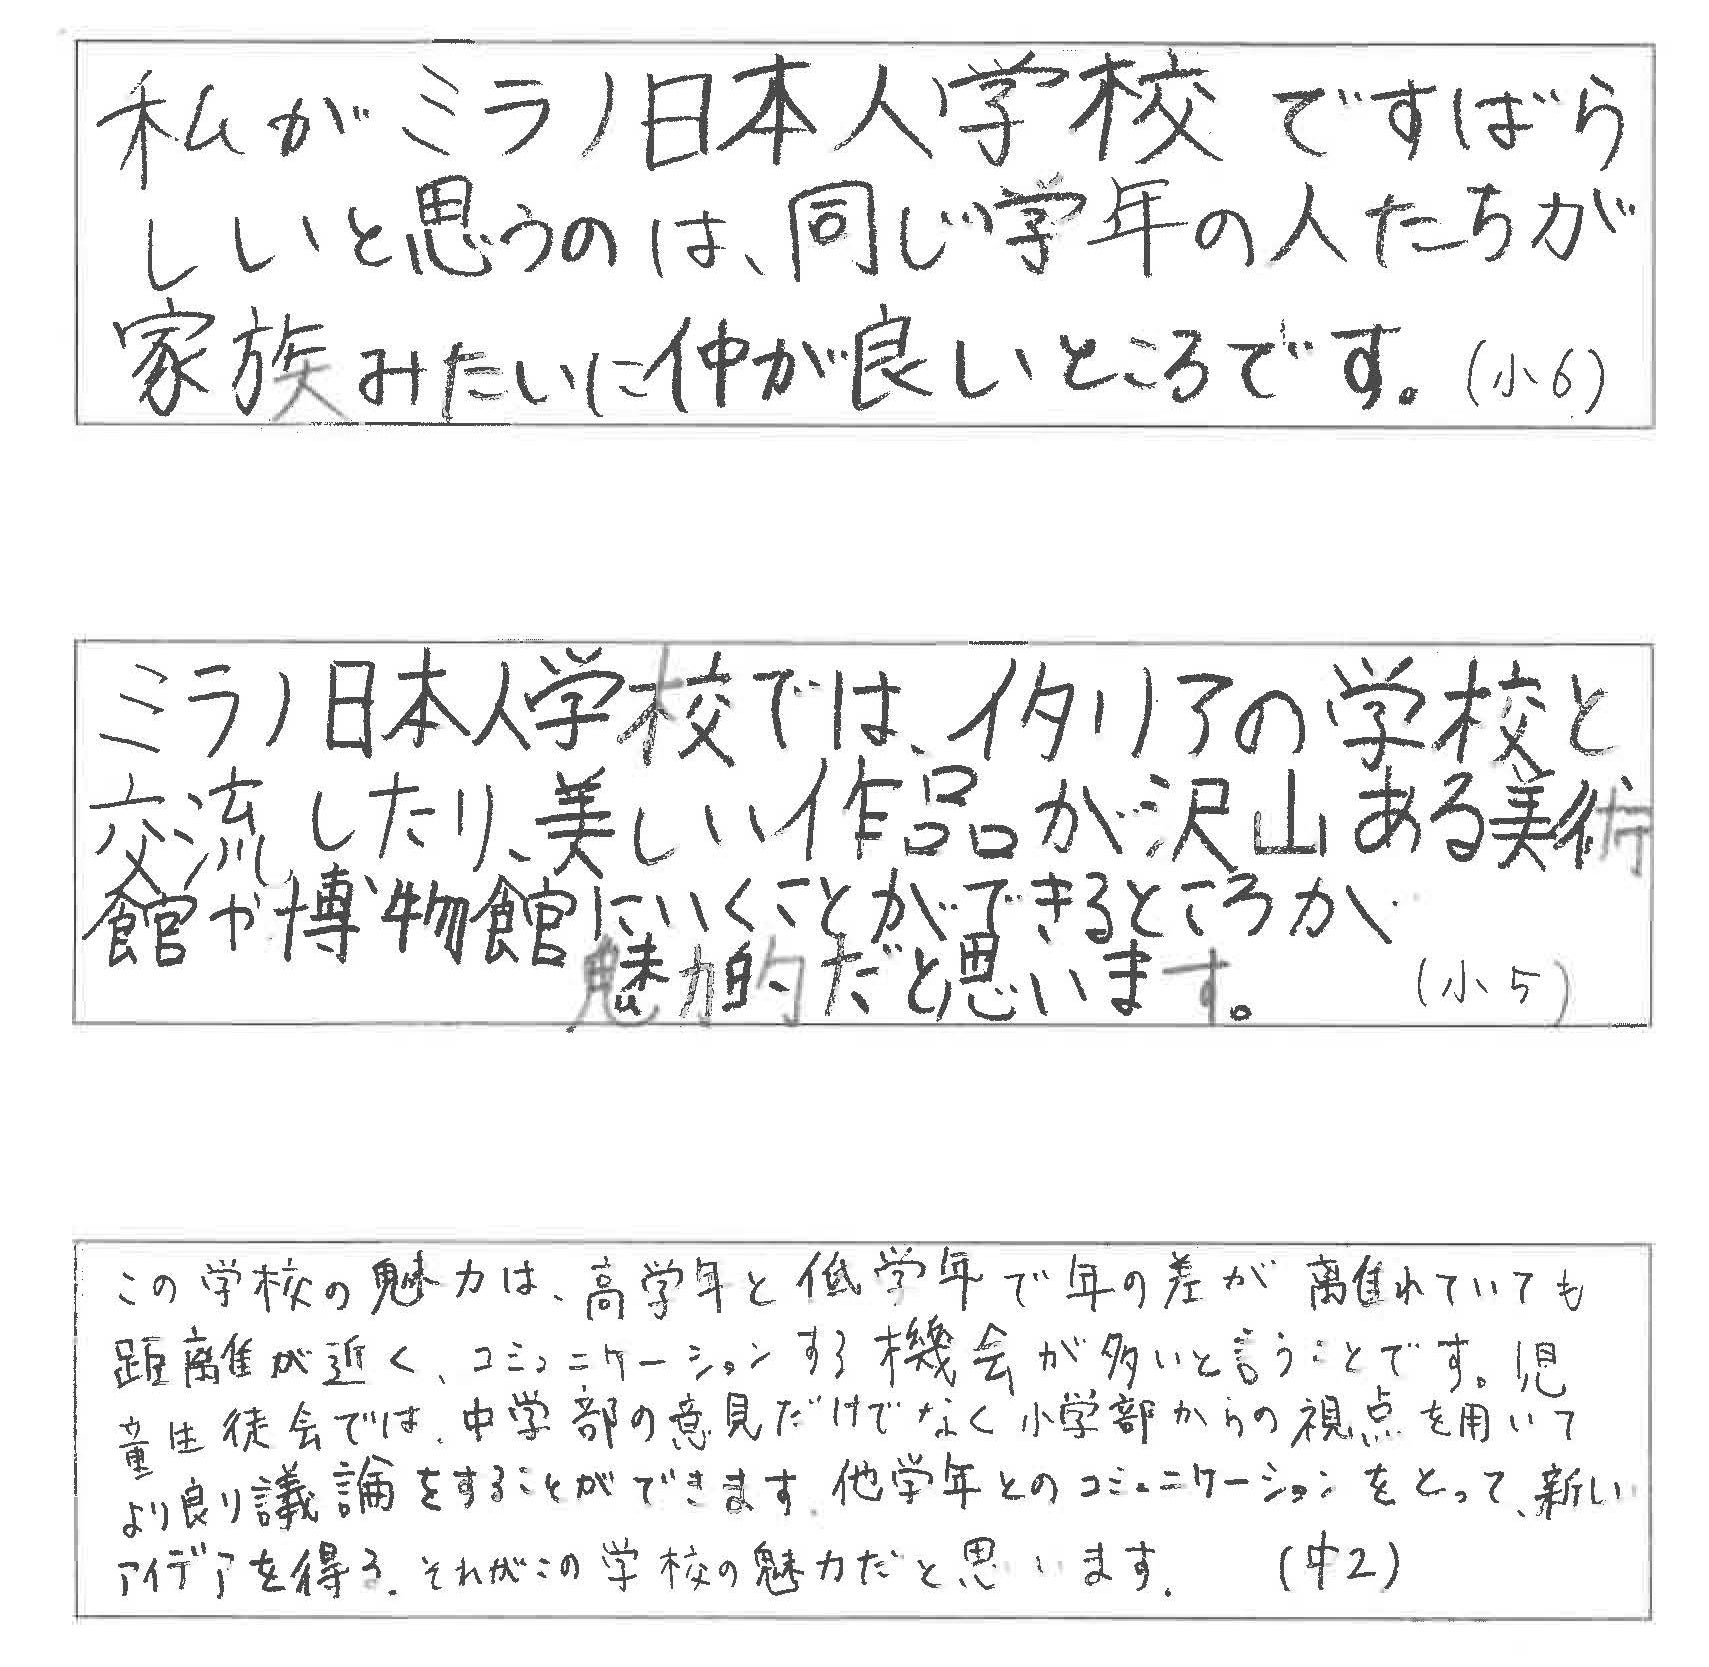 私がミラノ日本人学校ですばら
しいと思うのは、同じ学年の人たちが
家族みたいに仲が良いところです。(小6)
ミラノ日本人学校では、イタリアの学校と
交流したり、美しい作品が沢山ある美術
館や博物館にいくことができるところが
魅力的だと思います。 (小5)
この学校の魅力は、高学年と低学年で年の差が離れていても
距離が近く、コミュニケーションする機会が多いと言うことです。児
童生徒会では、中学部の意見だけでなく小学部からの視点を用いて
より良り議論をすることができます。他学年とのコミュニケーションをとって、新しい
アイデアを得る。それがこの学校の魅力だと思います。 (中2)